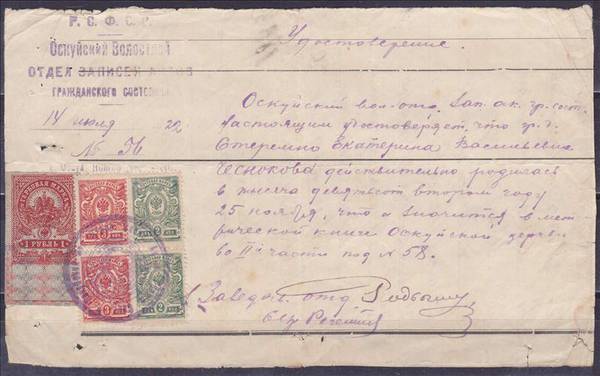 Р. С. Ф. С. Р.
Оскуйский Волостной
ОТДЕЛ ЗАПИСЕЙ АКТОВ
ГРАЖДАНСКОГО СОСТОЯНИЯ
14 июля 22
№ 36
Удостоверение.
Оскуйский вол. отд. зап. ак. гр. сост.
настоящим удостоверяет, что гр. д.
Стеремно Екатерина Васильевна
Чеснокова действительно родилась
в тысяча девятьсот втором году
25 ноября, что и значится в мет-
рической книге Оскуйской церк-
ви II части под № 58.
Заведыв. отд
1 РУБЛЬ 1
3 3
2 2
3 3
2 2